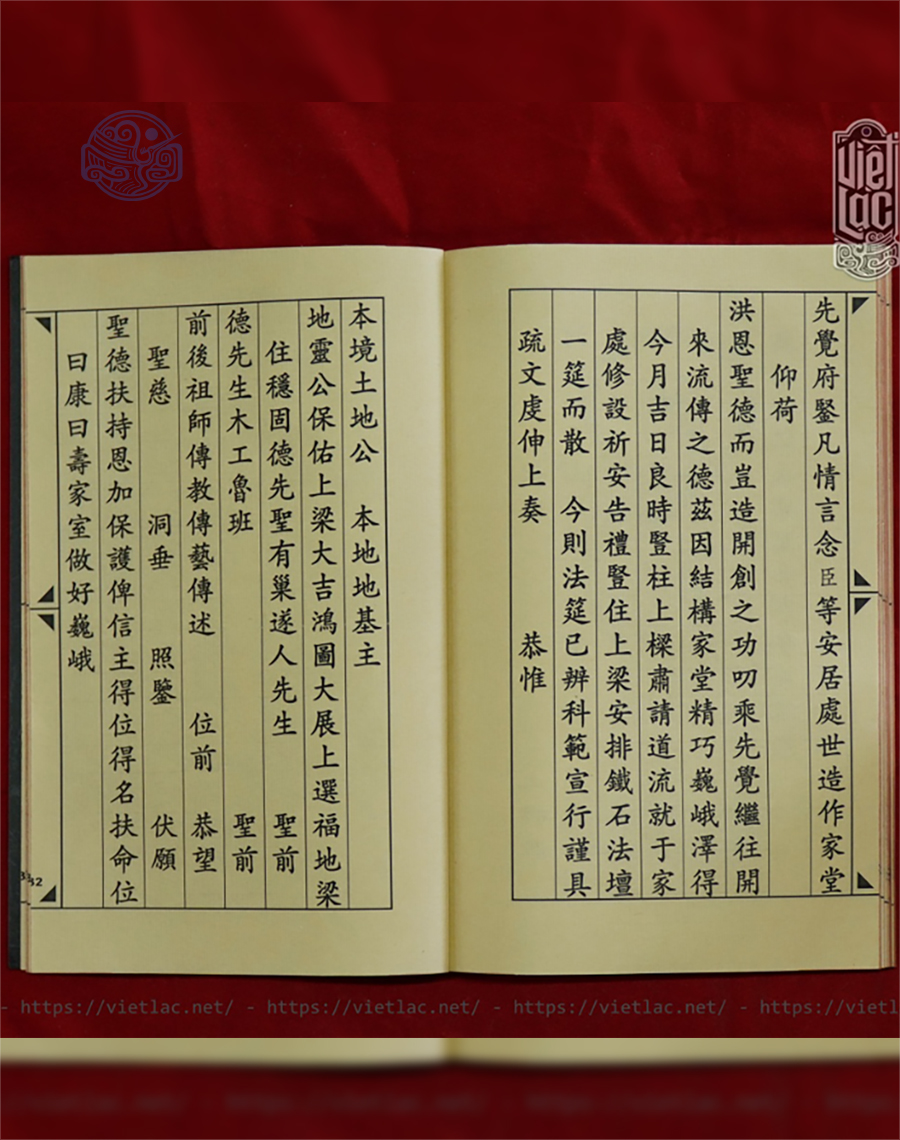 Việt Lạc
先覺府鋻凡情言念臣等安居處世造作家堂
仰荷
洪恩聖德而豈造開創之功叨乘先覺繼往開
來流傳之德茲因結構家堂精巧巍峨澤得
今月吉日良時豎柱上樑肅請道流就于家
處修設祈安告禮豎住上梁安排鐵石法壇
一筵而散 今則法筵已辨科範宣行謹具
疏文虔伸上奏 恭惟
本境土地公 本地地基主
地靈公保佑上梁大吉鴻圖大展上選福地梁
住穩固德先聖有巢遂人先生 聖前
德先生木工魯班 聖前
前後祖師傳教傳藝傳述 位前 恭望
聖慈 洞垂 照鑒 伏願
聖德扶持恩加保護俾信主得位得名扶命位
曰康曰壽家室做好巍峨
32
- https://vietlac.net/ - https://vietlac.net/ - https://vietlac.net/ - https://vietl